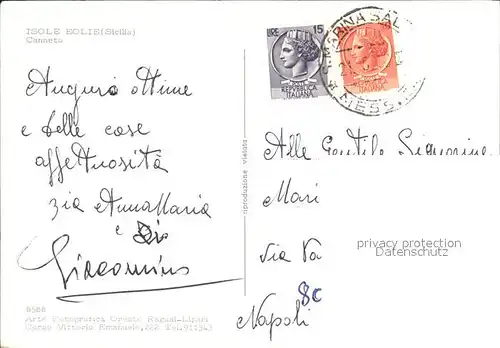 ISOLE EOLIE (Sicilia)
Canneto
Auguri ottime
e belle cose
affettuosità
zia AnnaMaria
e
Giacomino
8588
Arte Fotografica Oreste Ragusi-Lipari
Corso Vittorio Emanuele, 222 Tel. 911343
riproduzione vietata
LIRE 15
REPVBBLICA
ITALIANA
ITALIANA
MARINA SAL
MESS
Alle Gentile Signorine
Mari
Via
privacy protection
Datenschutz
8c
Napoli